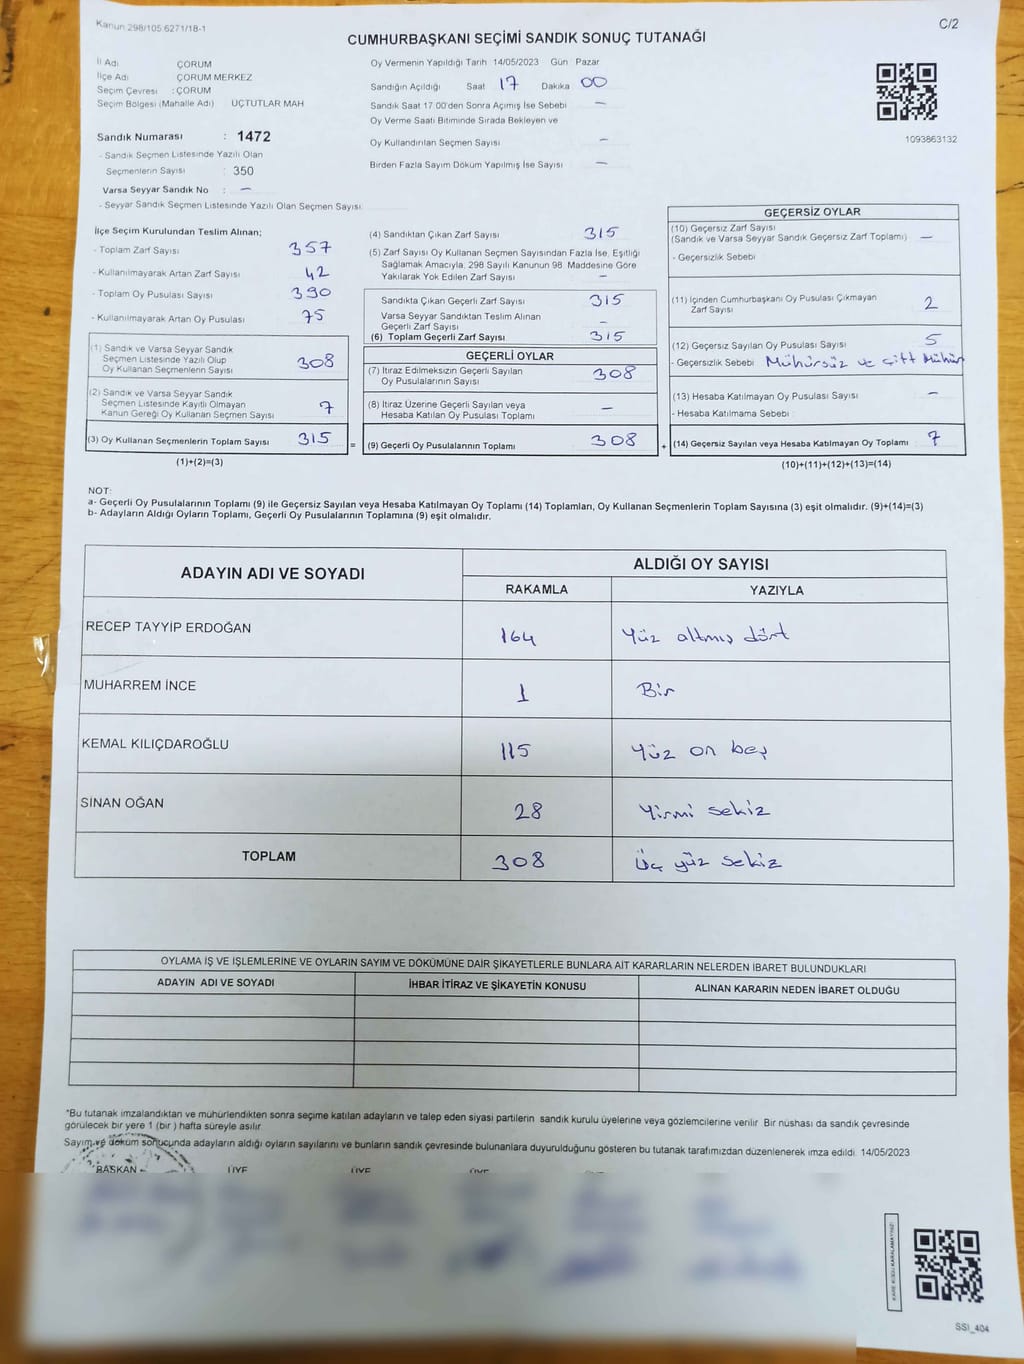 Kanun 298/105 6271/18-1
C/2
CUMHURBAŞKANI SEÇİMİ SANDIK SONUÇ TUTANAĞI
İl Adı ÇORUM
İlçe Adı ÇORUM MERKEZ
Seçim Çevresi : ÇORUM
Seçim Bölgesi (Mahalle Adı) ÜÇTUTLAR MAH
Sandık Numarası : 1472
- Sandık Seçmen Listesinde Yazılı Olan
Seçmenlerin Sayısı : 350
Varsa Seyyar Sandık No : –
- Seyyar Sandık Seçmen Listesinde Yazılı Olan Seçmen Sayısı
Oy Vermenin Yapıldığı Tarih 14/05/2023 Gün Pazar
Sandığın Açıldığı Saat 17 Dakika 00
Sandık Saat 17 00'den Sonra Açımış İse Sebebi –
Oy Verme Saati Bitiminde Sırada Bekleyen ve
Oy Kullandırılan Seçmen Sayısı –
Birden Fazla Sayım Döküm Yapılmış İse Sayısı –
1093863132
İlçe Seçim Kurulundan Teslim Alınan;
- Toplam Zarf Sayısı 357
- Kullanılmayarak Artan Zarf Sayısı 42
- Toplam Oy Pusulası Sayısı 390
- Kullanılmayarak Artan Oy Pusulası 75
(1) Sandık ve Varsa Seyyar Sandık
Seçmen Listesinde Yazılı Olup
Oy Kullanan Seçmenlerin Sayısı 308
(2) Sandık ve Varsa Seyyar Sandık
Seçmen Listesinde Kayıtlı Olmayan
Kanun Gereği Oy Kullanan Seçmen Sayısı 7
(3) Oy Kullanan Seçmenlerin Toplam Sayısı 315
(1)+(2)=(3)
(4) Sandıktan Çıkan Zarf Sayısı 315
(5) Zarf Sayısı Oy Kullanan Seçmen Sayısından Fazla İse, Eşitliği
Sağlamak Amacıyla, 298 Sayılı Kanunun 98 Maddesine Göre
Yakılarak Yok Edilen Zarf Sayısı –
Sandıkta Çıkan Geçerli Zarf Sayısı 315
Varsa Seyyar Sandıktan Teslim Alınan
Geçerli Zarf Sayısı –
(6) Toplam Geçerli Zarf Sayısı 315
GEÇERLİ OYLAR
(7) İtiraz Edilmeksizin Geçerli Sayılan
Oy Pusulalarının Sayısı 308
(8) İtiraz Üzerine Geçerli Sayılan veya
Hesaba Katılan Oy Pusulası Toplamı –
= (9) Geçerli Oy Pusulalarının Toplamı 308 +
GEÇERSİZ OYLAR
(10) Geçersiz Zarf Sayısı
(Sandık ve Varsa Seyyar Sandık Geçersiz Zarf Toplamı) –
- Geçersizlik Sebebi
(11) İçinden Cumhurbaşkanı Oy Pusulası Çıkmayan
Zarf Sayısı 2
(12) Geçersiz Sayılan Oy Pusulası Sayısı 5
- Geçersizlik Sebebi Mühürsüz ve Çift Mühür
(13) Hesaba Katılmayan Oy Pusulası Sayısı –
- Hesaba Katılmama Sebebi
(14) Geçersiz Sayılan veya Hesaba Katılmayan Oy Toplamı 7
(10)+(11)+(12)+(13)=(14)
NOT:
a- Geçerli Oy Pusulalarının Toplamı (9) ile Geçersiz Sayılan veya Hesaba Katılmayan Oy Toplamı (14) Toplamları, Oy Kullanan Seçmenlerin Toplam Sayısına (3) eşit olmalıdır. (9)+(14)=(3)
b- Adayların Aldığı Oyların Toplamı, Geçerli Oy Pusulalarının Toplamına (9) eşit olmalıdır.
ADAYIN ADI VE SOYADI
ALDIĞI OY SAYISI
RAKAMLA YAZIYLA
RECEP TAYYİP ERDOĞAN 164 Yüz altmış dört
MUHARREM İNCE 1 Bir
KEMAL KILIÇDAROĞLU 115 Yüz on beş
SİNAN OĞAN 28 Yirmi sekiz
TOPLAM 308 Üç yüz sekiz
OYLAMA İŞ VE İŞLEMLERİNE VE OYLARIN SAYIM VE DÖKÜMÜNE DAİR ŞİKAYETLERLE BUNLARA AİT KARARLARIN NELERDEN İBARET BULUNDUKLARI
ADAYIN ADI VE SOYADI İHBAR İTİRAZ VE ŞİKAYETİN KONUSU ALINAN KARARIN NEDEN İBARET OLDUĞU
*Bu tutanak imzalandıktan ve mühürlendikten sonra seçime katılan adayların ve talep eden siyasi partilerin sandık kurulu üyelerine veya gözlemcilerine verilir Bir nüshası da sandık çevresinde
görülecek bir yere 1 (bir ) hafta süreyle asılır
Sayım ve döküm sonucunda adayların aldığı oyların sayılarını ve bunların sandık çevresinde bulunanlara duyurulduğunu gösteren bu tutanak tarafımızdan düzenlenerek imza edildi. 14/05/2023
BAŞKAN ÜYE ÜYE ÜYE
KARE KODU KARALAMAYINIZ!
SSI_404